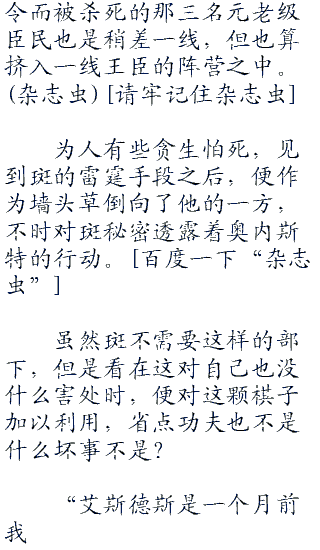 令而被杀死的那三名元老级
臣民也是稍差一线，但也算
挤入一线王臣的阵营之中。
(杂志虫)[请牢记住杂志虫]
为人有些贪生怕死，见
到斑的雷霆手段之后，便作
为墙头草倒向了他的一方，
不时对斑秘密透露着奥内斯
特的行动。[百度一下“杂志
虫”]
虽然斑不需要这样的部
下，但是看在这对自己也没
什么害处时，便对这颗棋子
加以利用，省点功夫也不是
什么坏事不是？
“艾斯德斯是一个月前
我